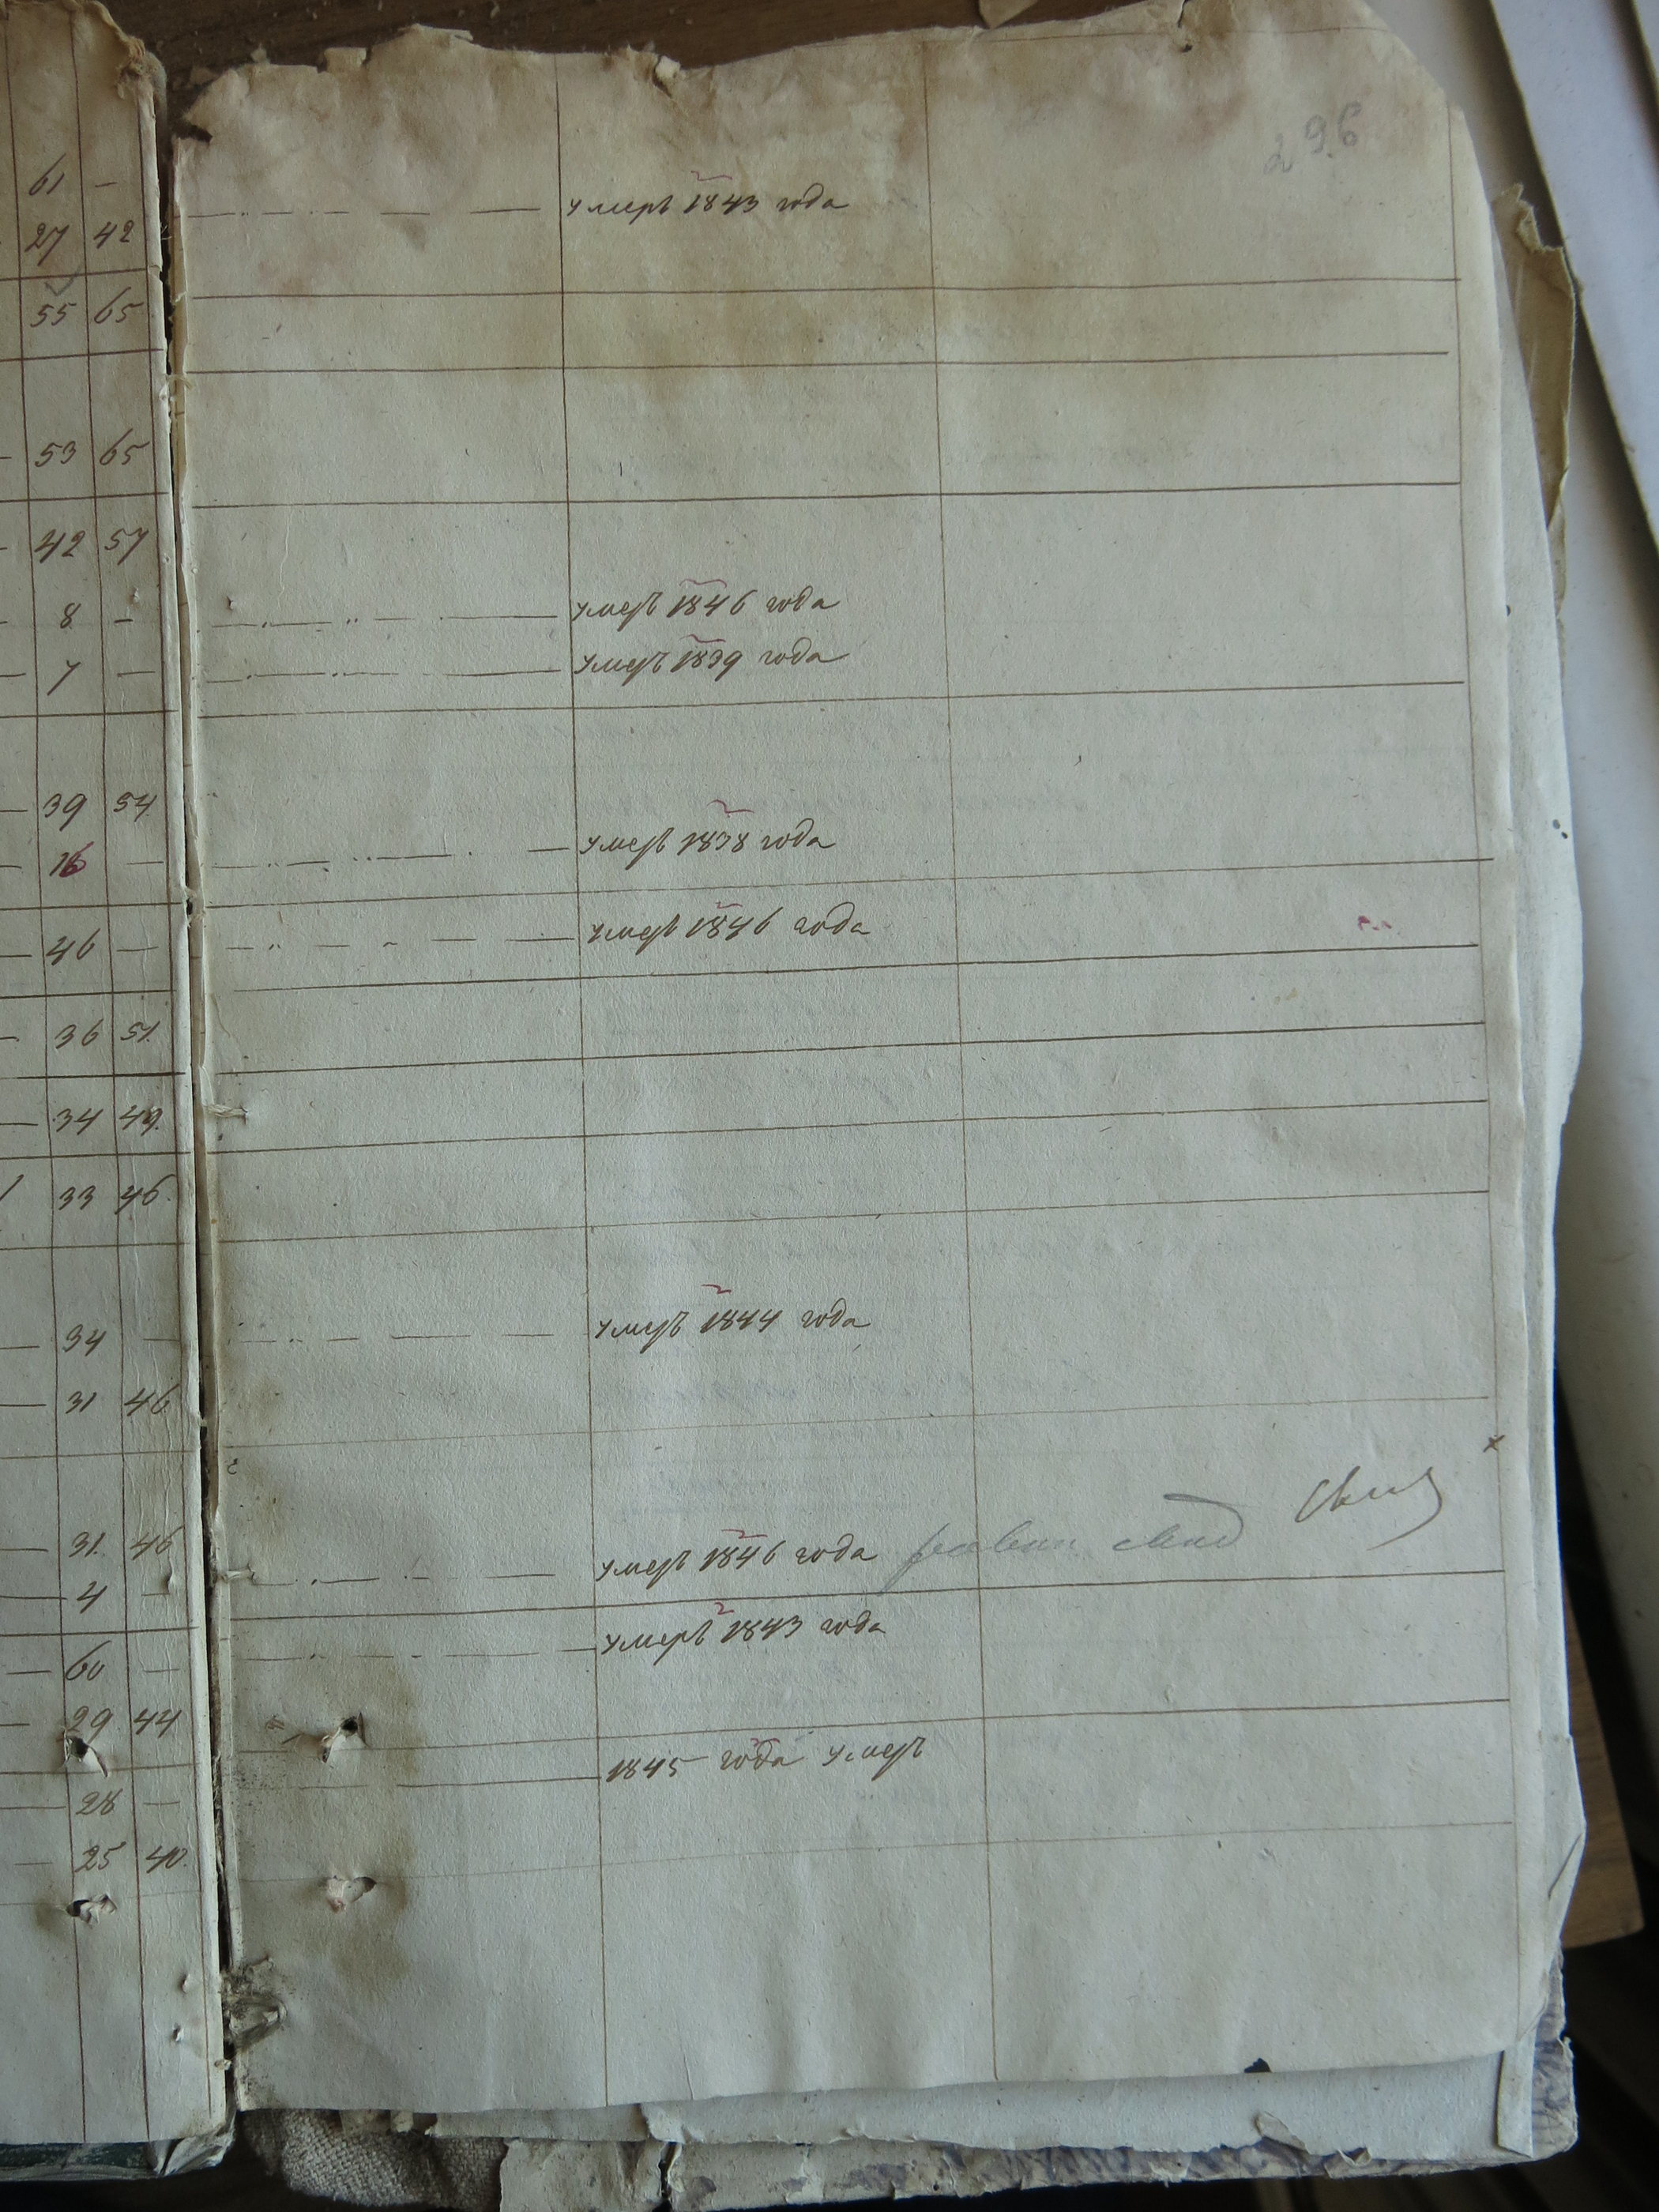 296
61 —
27 42
55 65
53 65
42 57
8 —
7 —
39 54
16 —
46 —
36 51.
34 49.
33 46.
34 —
31 46
31. 46
4 —
60 —
29 44
28 —
25 40.
умеръ 1843 года
умеръ 1846 года
умеръ 1839 года
умеръ 1838 года
умеръ 1846 года
умеръ 1844 года
умеръ 1846 года
умеръ 1843 года
1845 года умеръ